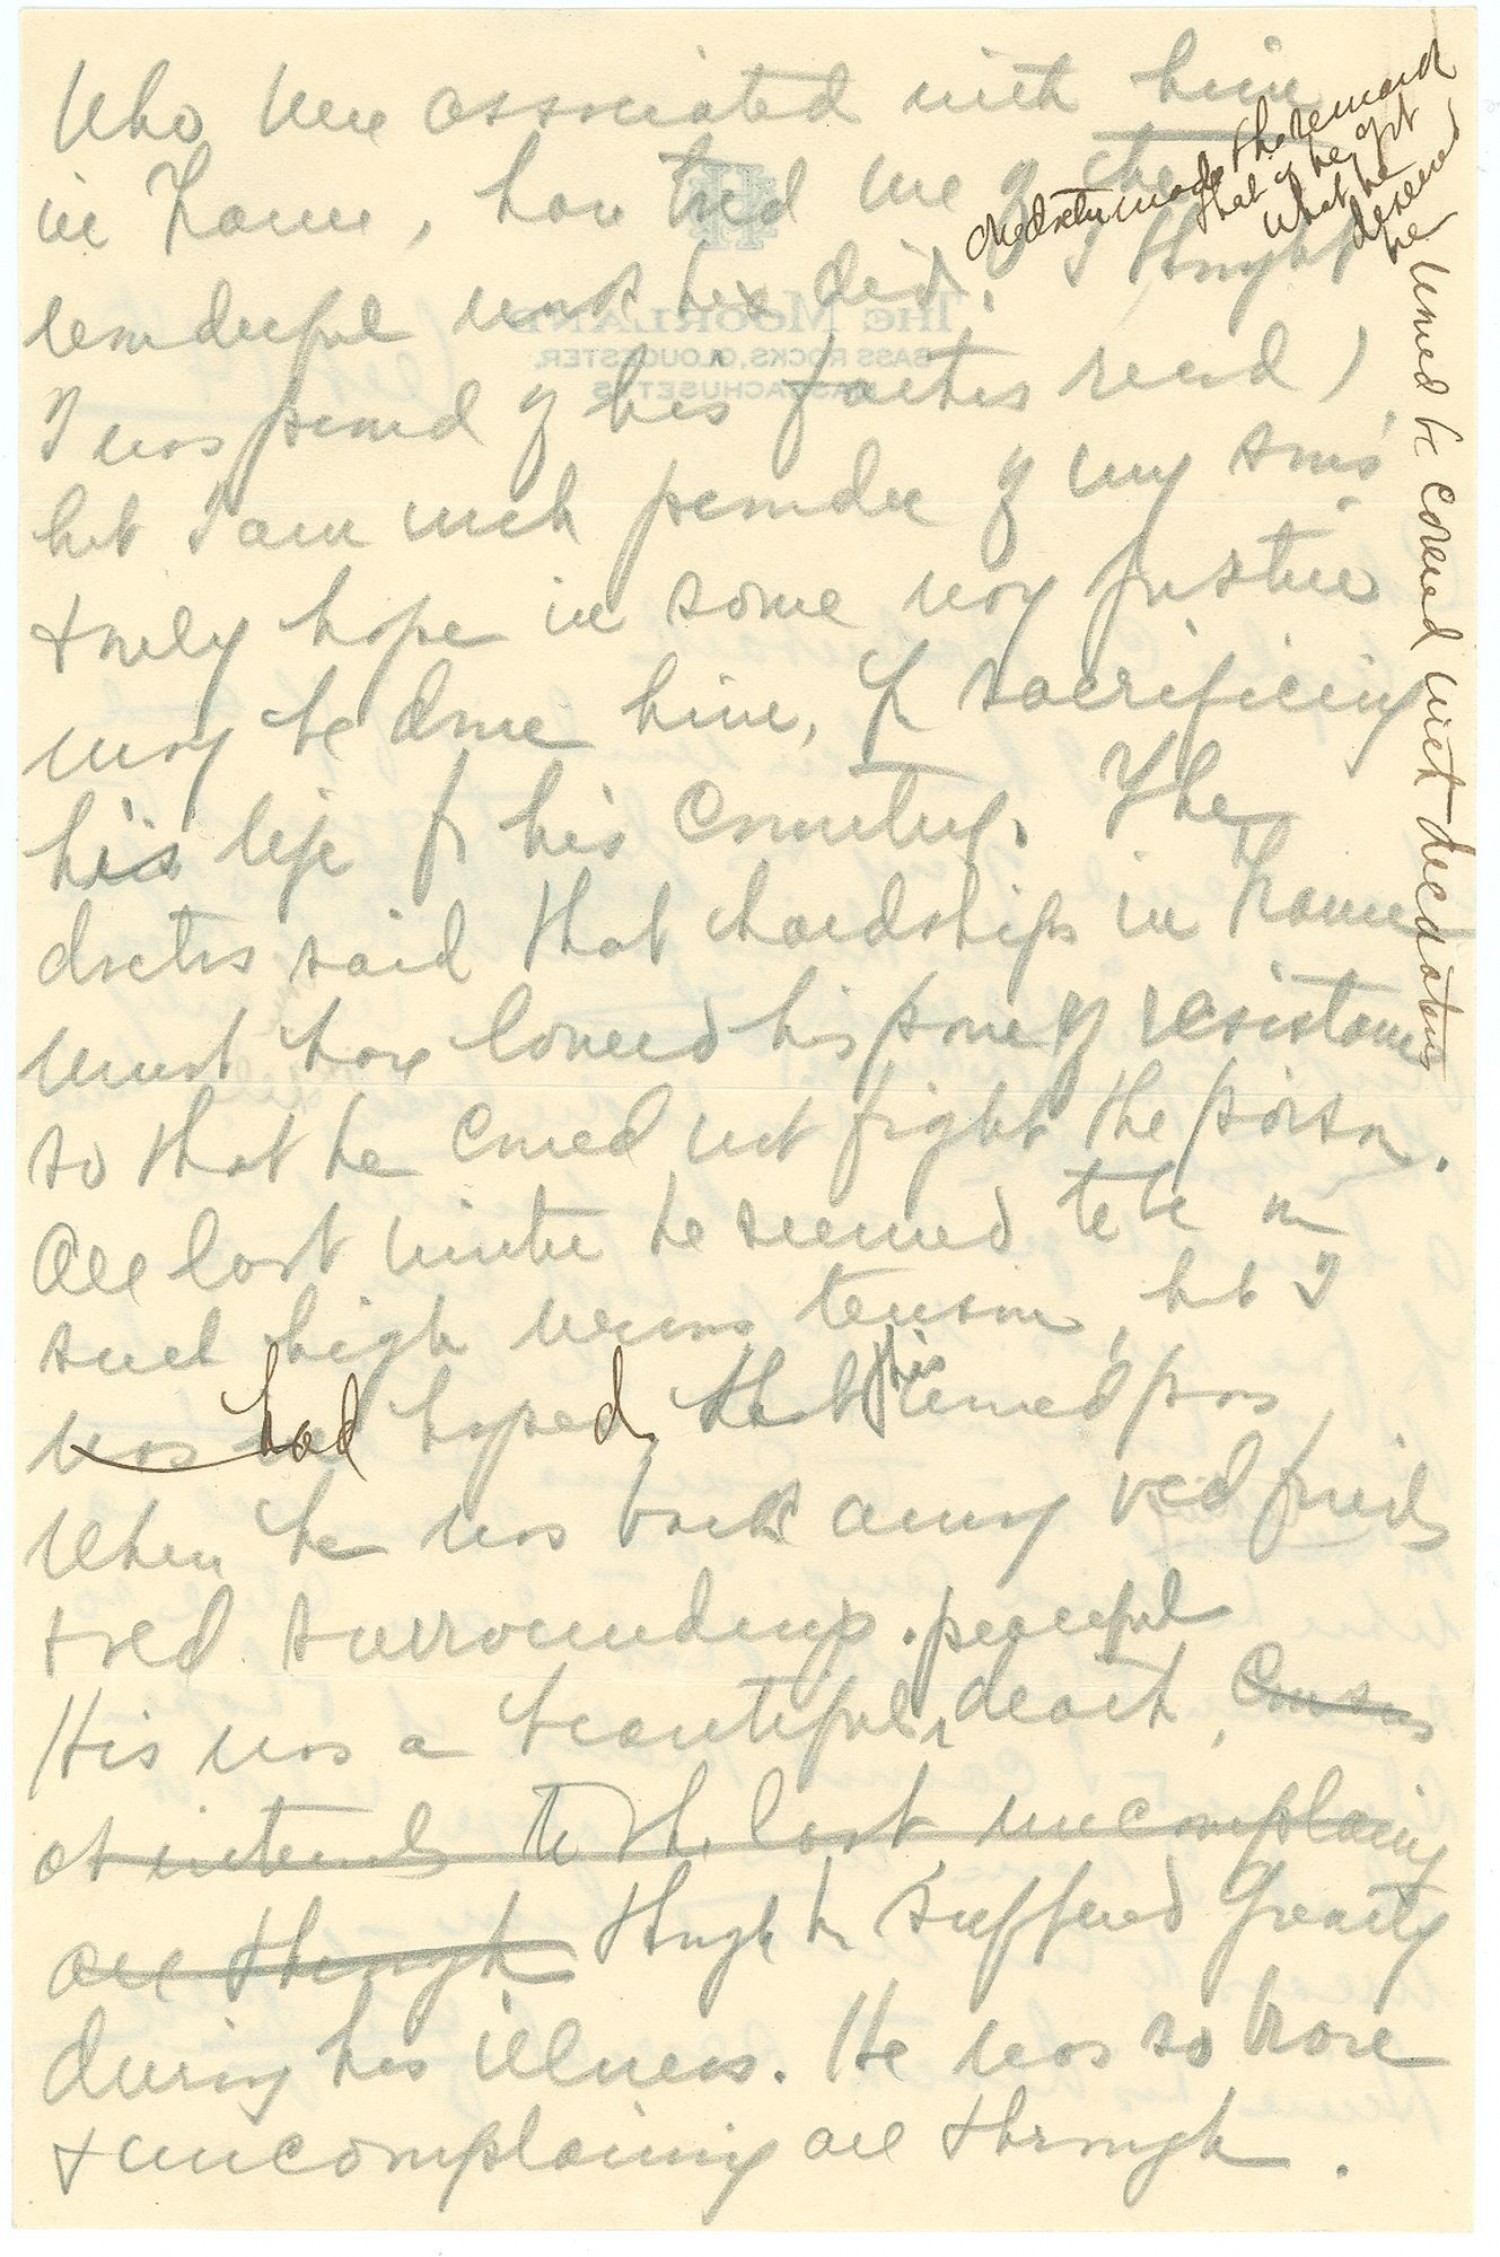 who were associated with him
in France, have told me of the
wonderful work he did. I thought
I was proud of his father's record,
but I am much prouder of my son's
& only hope in some way justice
may be done him, for sacrificing
his life for his country. The
doctors said that hardships in France
must have lowered his power of resistance
so that he could not fight the poison.
All last winter he seemed to be in
such high nervous tension, but I
was had hoped, that this would pass
when he was back among old friends
& old surroundings.
peaceful
His was a beautiful death, Conscious
at intervals to the last uncomplaining
all through though he suffered greatly
during his illness. He was so brave
& uncomplaining all through.
One doctor made the remark
that if he got
what he
deserved
he
would be covered with decorations
THE MOORLAND
BASS ROCKS, GLOUCESTER,
MASSACHUSETTS